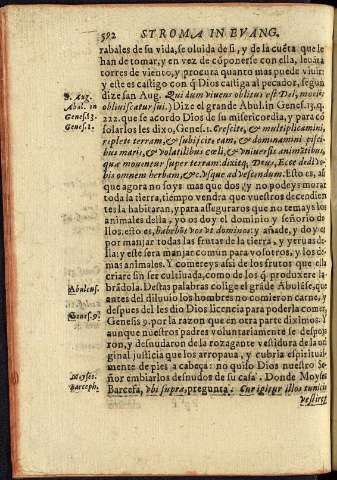 592 STROMA IN EVANG.
rabales de su vida, se oluida de si, y de la cuēta que le
han de tomar, y en vez de cōponerse con ella, leuāta
torres de viento, y procura quanto mas puede viuir:
y este es castigo con q̄ Dios castiga al pecador, segun
S. Aug.
dize san Aug. Qui dum viueret oblitus est Dei, moriēs
Abul. in
obliuiscatur sui.) Dize el grande Abul. in Genes. 13. q.
Genes. 13.
222. que se acordo Dios de su misericordia, y para cō
Genes. 1.
solarlos les dixo, Genes. 1. Crescite, & multiplicamini,
replete terram, & subijcite eam, & dominamini pisci-
bus maris, & volatilibus cœli, & vniuersis animātibus,
quæ mouentur super terram: dixitq́, Deus, Ecce dedi vo-
bis omnem herbam, &c. vsque ad vescendum. Esto es, aū
que agora no soys mas que dos, y no podeys morar
toda la tierra, tiempo vendra que vuestros decendien
tes la habitaran, y para asseguraros que no temays los
animales della, yo os doy el dominio y señorio de
llos: esto es, habebitis vos vt dominos: y añade, y doy os
por manjar todas las frutas de la tierra, y yeruas de-
lla: y este sera manjar comun para vosotros, y los de-
mas animales. Y comereys assi de los frutos que ella
criare sin ser cultiuada, como de los q̄ produxere la-
Abulens.
brādola. Destas palabras colige el grāde Abulēse, que
antes del diluuio los hombres no comieron carne, y
despues del les dio Dios licencia para poderla comer,
Genes. 9.
Genesis 9. por la razon que en otra parte diximos. Y
aunque nuestros padres voluntariamente se despoja
ron, y desnudaron de la rozagante vestidura de la ori
ginal justicia que los arropaua, y cubria espiritual-
mente de pies a cabeça: no quiso Dios nuestro Se-
Moyses
ñor embiarlos desnudos de su casa. Donde Moyses
Barceph.
Barcefa, vbi supra, pregunta. Cur igitur illos tunicis
vestiret